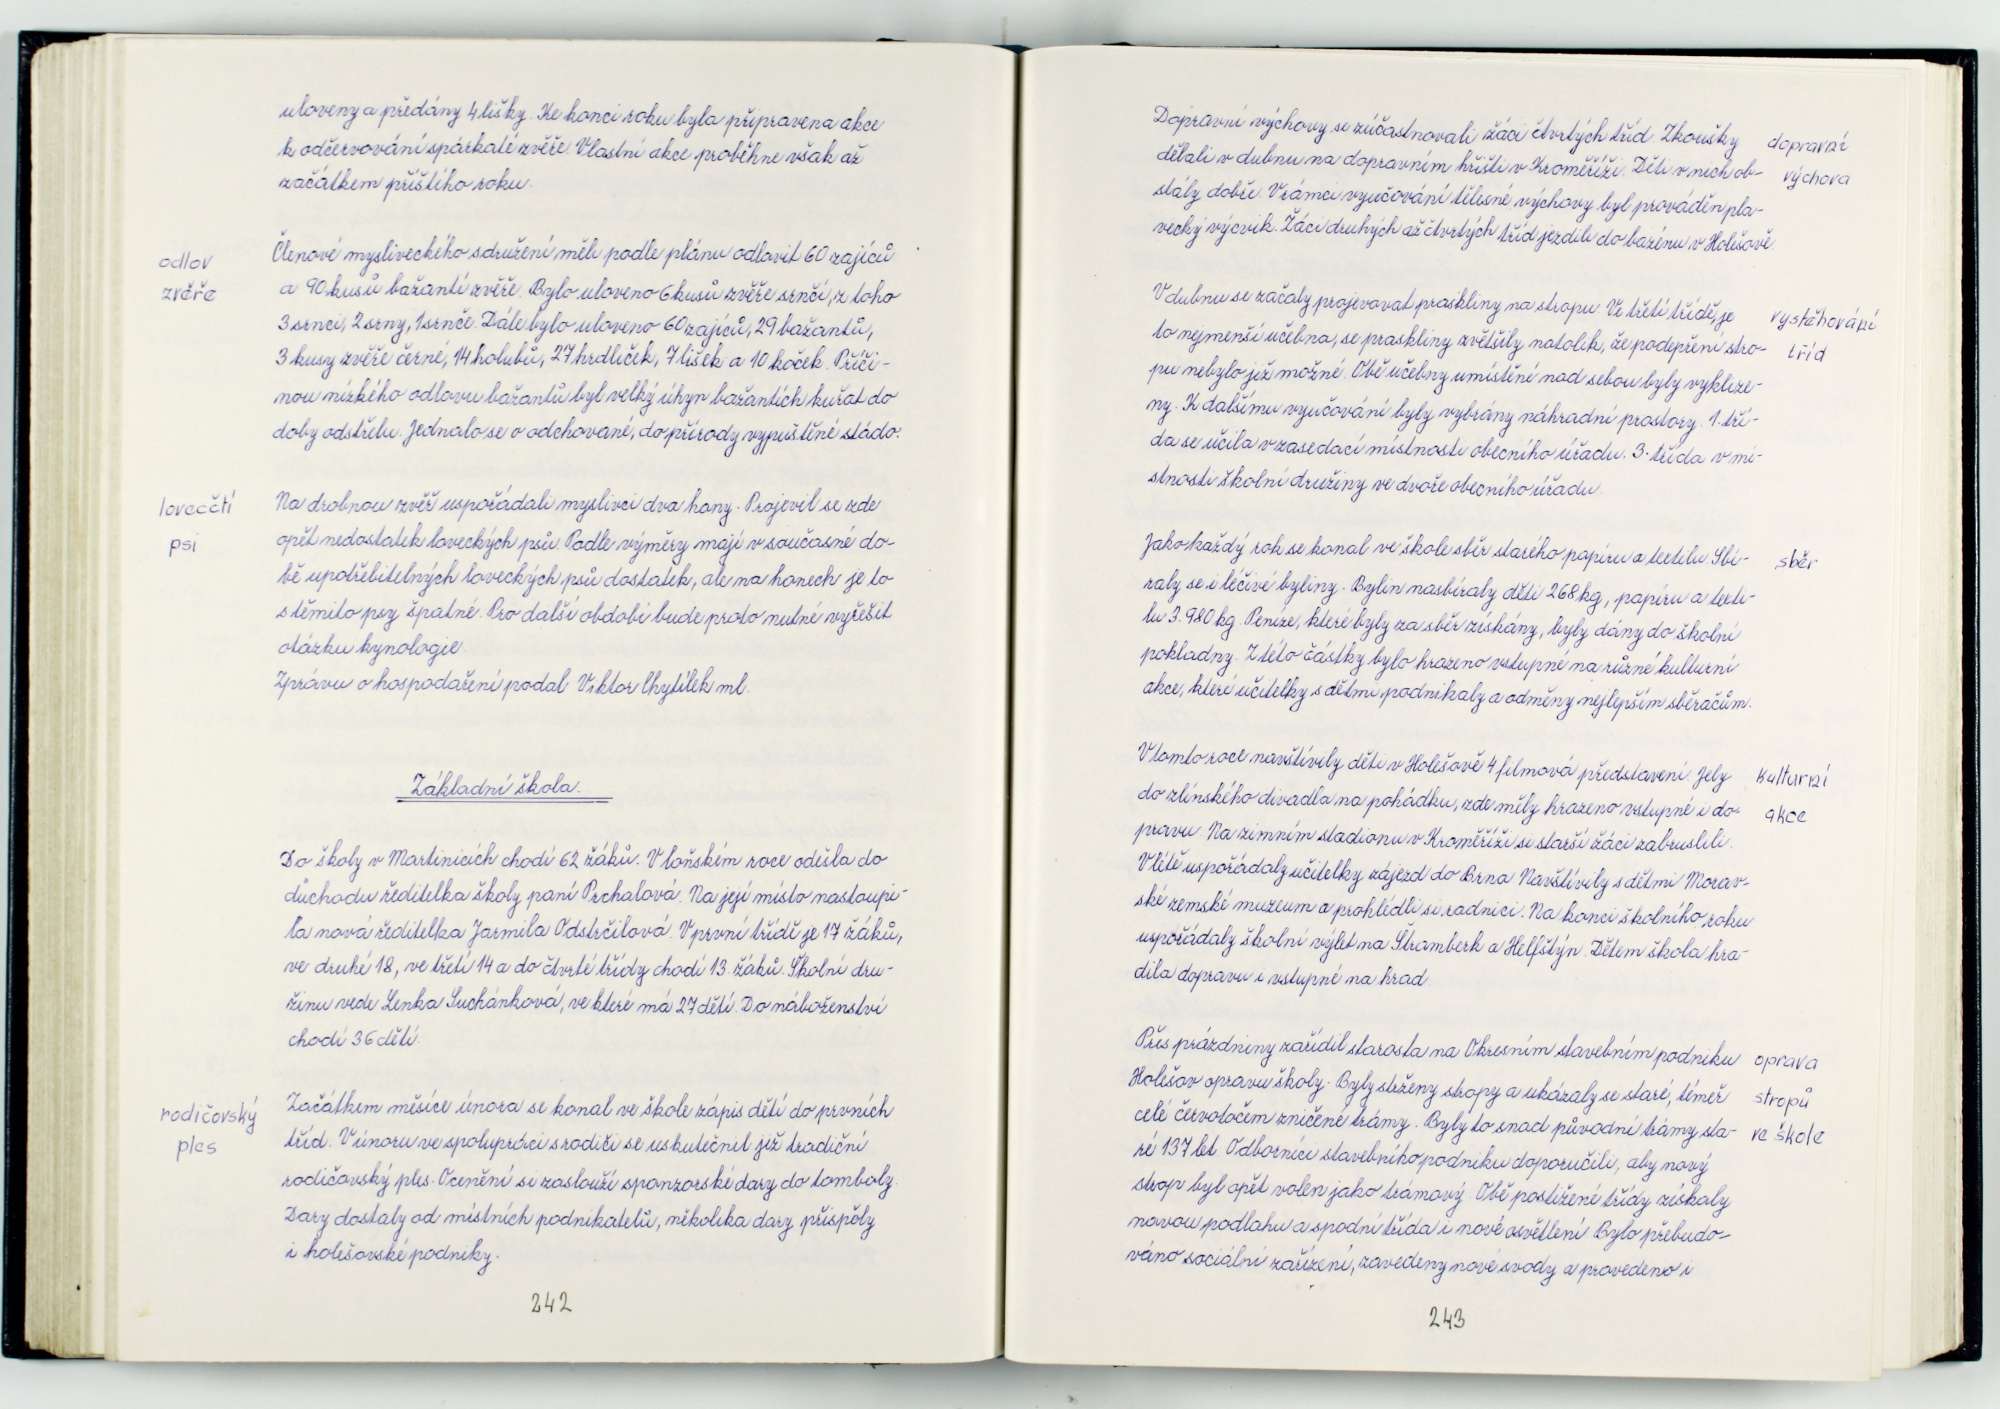 uloveny a předány 4 lišky. Ke konci roku byla připravena akce
k odčervování spárkaté zvěře. Vlastní akce proběhne však až
začátkem příštího roku.
odlov
zvěře
Členové mysliveckého sdružení měli podle plánu odlovit 60 zajíců
a 90 kusů bažantí zvěře. Bylo uloveno 6 kusů zvěře srnčí, z toho
3 srnci, 2 srny, 1 srnče. Dále bylo uloveno 60 zajíců, 29 bažantů,
3 kusy zvěře černé, 14 holubů, 27 hrdliček, 7 lišek a 10 koček. Příči-
nou nízkého odlovu bažantů byl velký úhyn bažantích kuřat do
doby odstřelu. Jednalo se o odchované, do přírody vypuštěné stádo.
lovečtí
psi
Na drobnou zvěř uspořádali myslivci dva hony. Projevil se zde
opět nedostatek loveckých psů. Podle výměry mají v současné do-
bě upotřebitelných loveckých psů dostatek, ale na honech je to
s těmito psy špatné. Pro další období bude proto nutné vyřešit
otázku kynologie.
Zprávu o hospodaření podal Viktor Chytílek ml.
Základní škola.
Do školy v Martinicích chodí 62 žáků. V loňském roce odešla do
důchodu ředitelka školy paní Prchalová. Na její místo nastoupi-
la nová ředitelka Jarmila Odstrčilová. V první třídě je 17 žáků,
ve druhé 18, ve třetí 14 a do čtvrté třídy chodí 13 žáků. Školní dru-
žinu vede Lenka Suchánková, ve které má 27 dětí. Do náboženství
chodí 36 dětí.
rodičovský
ples
Začátkem měsíce února se konal ve škole zápis dětí do prvních
tříd. V únoru ve spolupráci s rodiči se uskutečnil již tradiční
rodičovský ples. Ocenění si zaslouží sponzorské dary do tomboly.
Dary dostaly od místních podnikatelů, několika dary přispěly
i holešovské podniky.
242
Dopravní výchovy se zúčastnovali žáci čtvrtých tříd. Zkoušky
dělali v dubnu na dopravním hřišti v Kroměříži. Děti v nich ob-
stály dobře. V rámci vyučování tělesné výchovy byl prováděn pla-
vecký výcvik. Žáci druhých až čtvrtých tříd jezdili do bazénu v Holešově.
dopravní
výchova
V dubnu se začaly projevovat praskliny na stropu. Ve třetí třídě, je
to nejmenší učebna, se praskliny zvětšily natolik, že podepření stro-
pu nebylo již možné. Obě učebny umístěné nad sebou byly vyklize-
ny. K dalšímu vyučování byly vybrány náhradní prostory. 1. tří-
da se učila v zasedací místnosti obecního úřadu. 3. třída v mí-
stnosti školní družiny ve dvoře obecního úřadu.
vystěhování
tříd
Jako každý rok se konal ve škole sběr starého papíru a textilu. Sbí-
raly se i léčivé byliny. Bylin nasbíraly děti 268 kg, papíru a texti-
lu 3.980 kg. Peníze, které byly za sběr získány, byly dány do školní
pokladny. Z této částky bylo hrazeno vstupné na různé kulturní
akce, které učitelky s dětmi podnikaly a odměny nejlepším sběračům.
sběr
V tomto roce navštívily děti v Holešově 4 filmová představení. Jely
do zlínského divadla na pohádku, zde měly hrazeno vstupné i do-
pravu. Na zimním stadionu v Kroměříži si starší žáci zabruslili.
V létě uspořádaly učitelky zájezd do Brna. Navštívily s dětmi Morav-
ské zemské muzeum a prohlédli si radnici. Na konci školního roku
uspořádaly školní výlet na Štramberk a Helfštýn. Dětem škola hra-
dila dopravu i vstupné na hrad.
kulturní
akce
Přes prázdniny zařídil starosta na Okresním stavebním podniku
Holešov opravu školy. Byly strženy stropy a ukázaly se staré, téměř
celé červotočem zničené trámy. Byly to snad původní trámy sta-
ré 137 let. Odborníci stavebního podniku doporučili, aby nový
strop byl opět volen jako trámový. Obě postižené třídy získaly
novou podlahu a spodní třída i nové osvětlení. Bylo přebudo-
váno sociální zařízení, zavedeny nové svody a provedeno i
oprava
stropů
ve škole
243